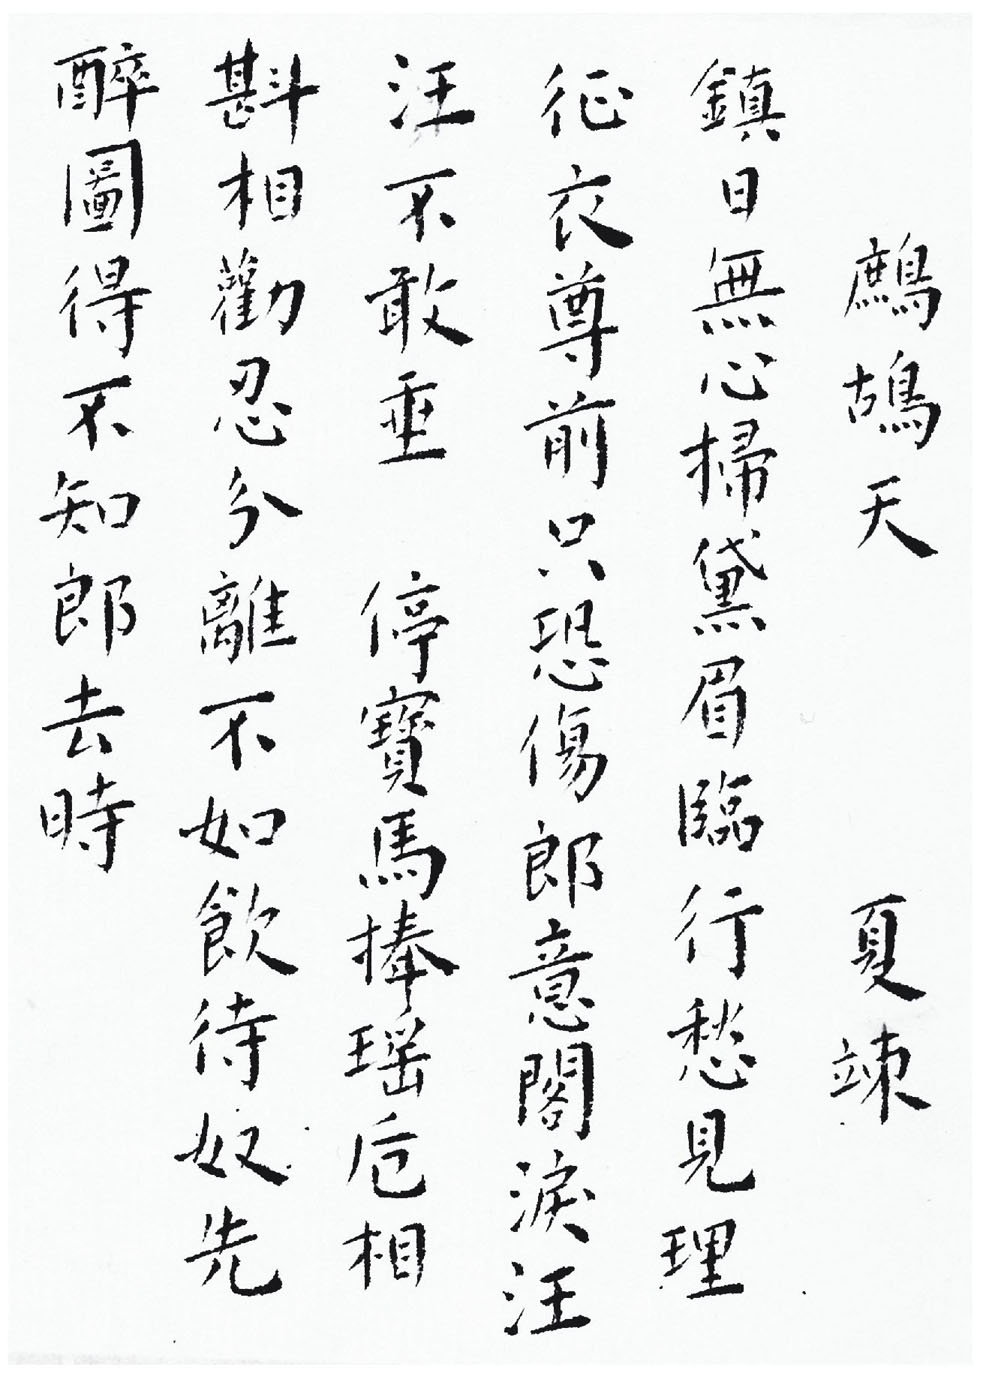 鷓鴣天 夏竦
鎮日無心掃黛眉臨行愁見理
征衣尊前只恐傷郎意閣淚汪
汪不敢垂 停寶馬捧瑤卮相
斟相勸忍分離不如飲待奴先
醉圖得不知郎去時